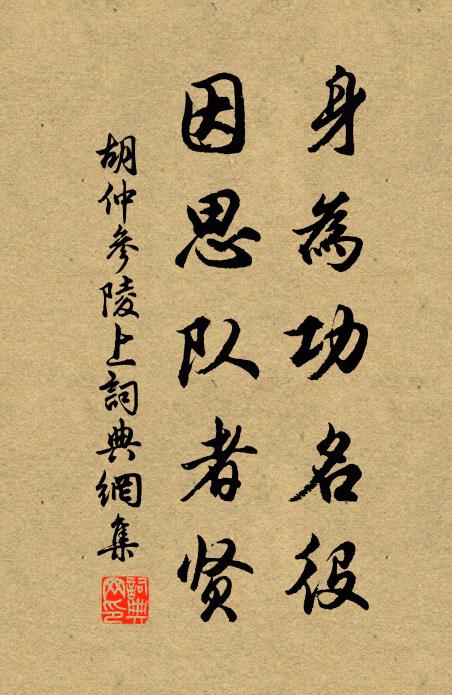 身為功名役
因思队者贤
胡仲參陵上詞典網集
詞典网印